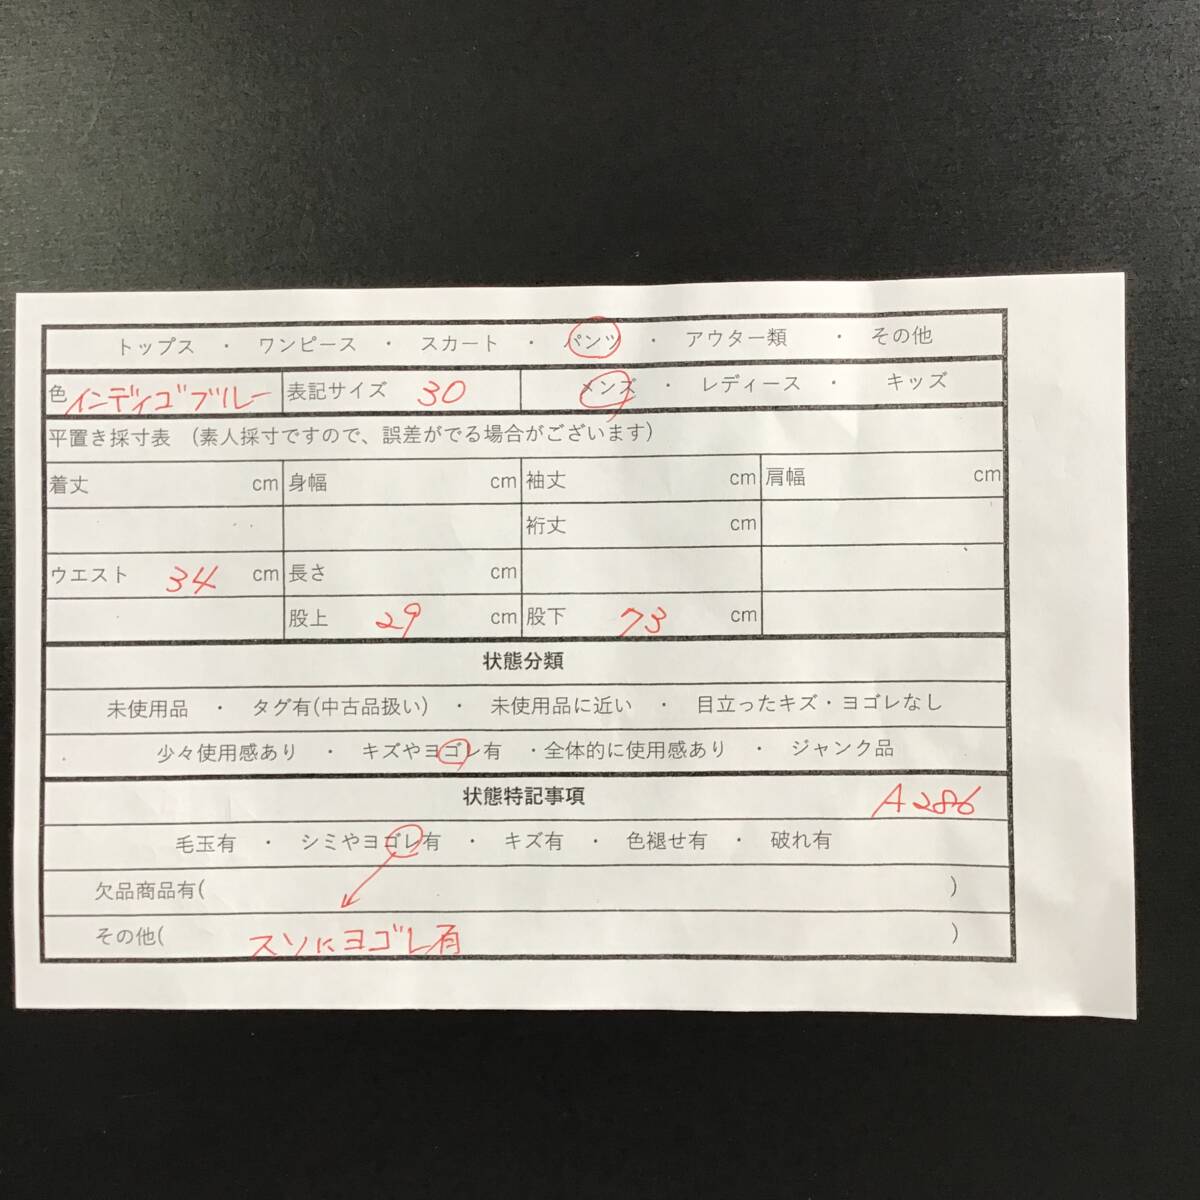 トップス ・ ワンピース ・ スカート ・ パンツ ・ アウター類 ・ その他
色 インディゴブルー 表記サイズ 30 メンズ ・ レディース ・ キッズ
平置き採寸表 (素人採寸ですので、誤差がでる場合がございます)
着丈 cm 身幅 cm 袖丈 cm 肩幅 cm
裄丈 cm
ウエスト 34 cm 長さ cm
股上 29 cm 股下 73 cm
状態分類
未使用品 ・ タグ有(中古品扱い) ・ 未使用品に近い ・ 目立ったキズ・ヨゴレなし
少々使用感あり ・ キズやヨゴレ有 ・全体的に使用感あり ・ ジャンク品
状態特記事項 A286
毛玉有 ・ シミやヨゴレ有 ・ キズ有 ・ 色褪せ有 ・ 破れ有
欠品商品有( )
その他( スソにヨゴレ有 )